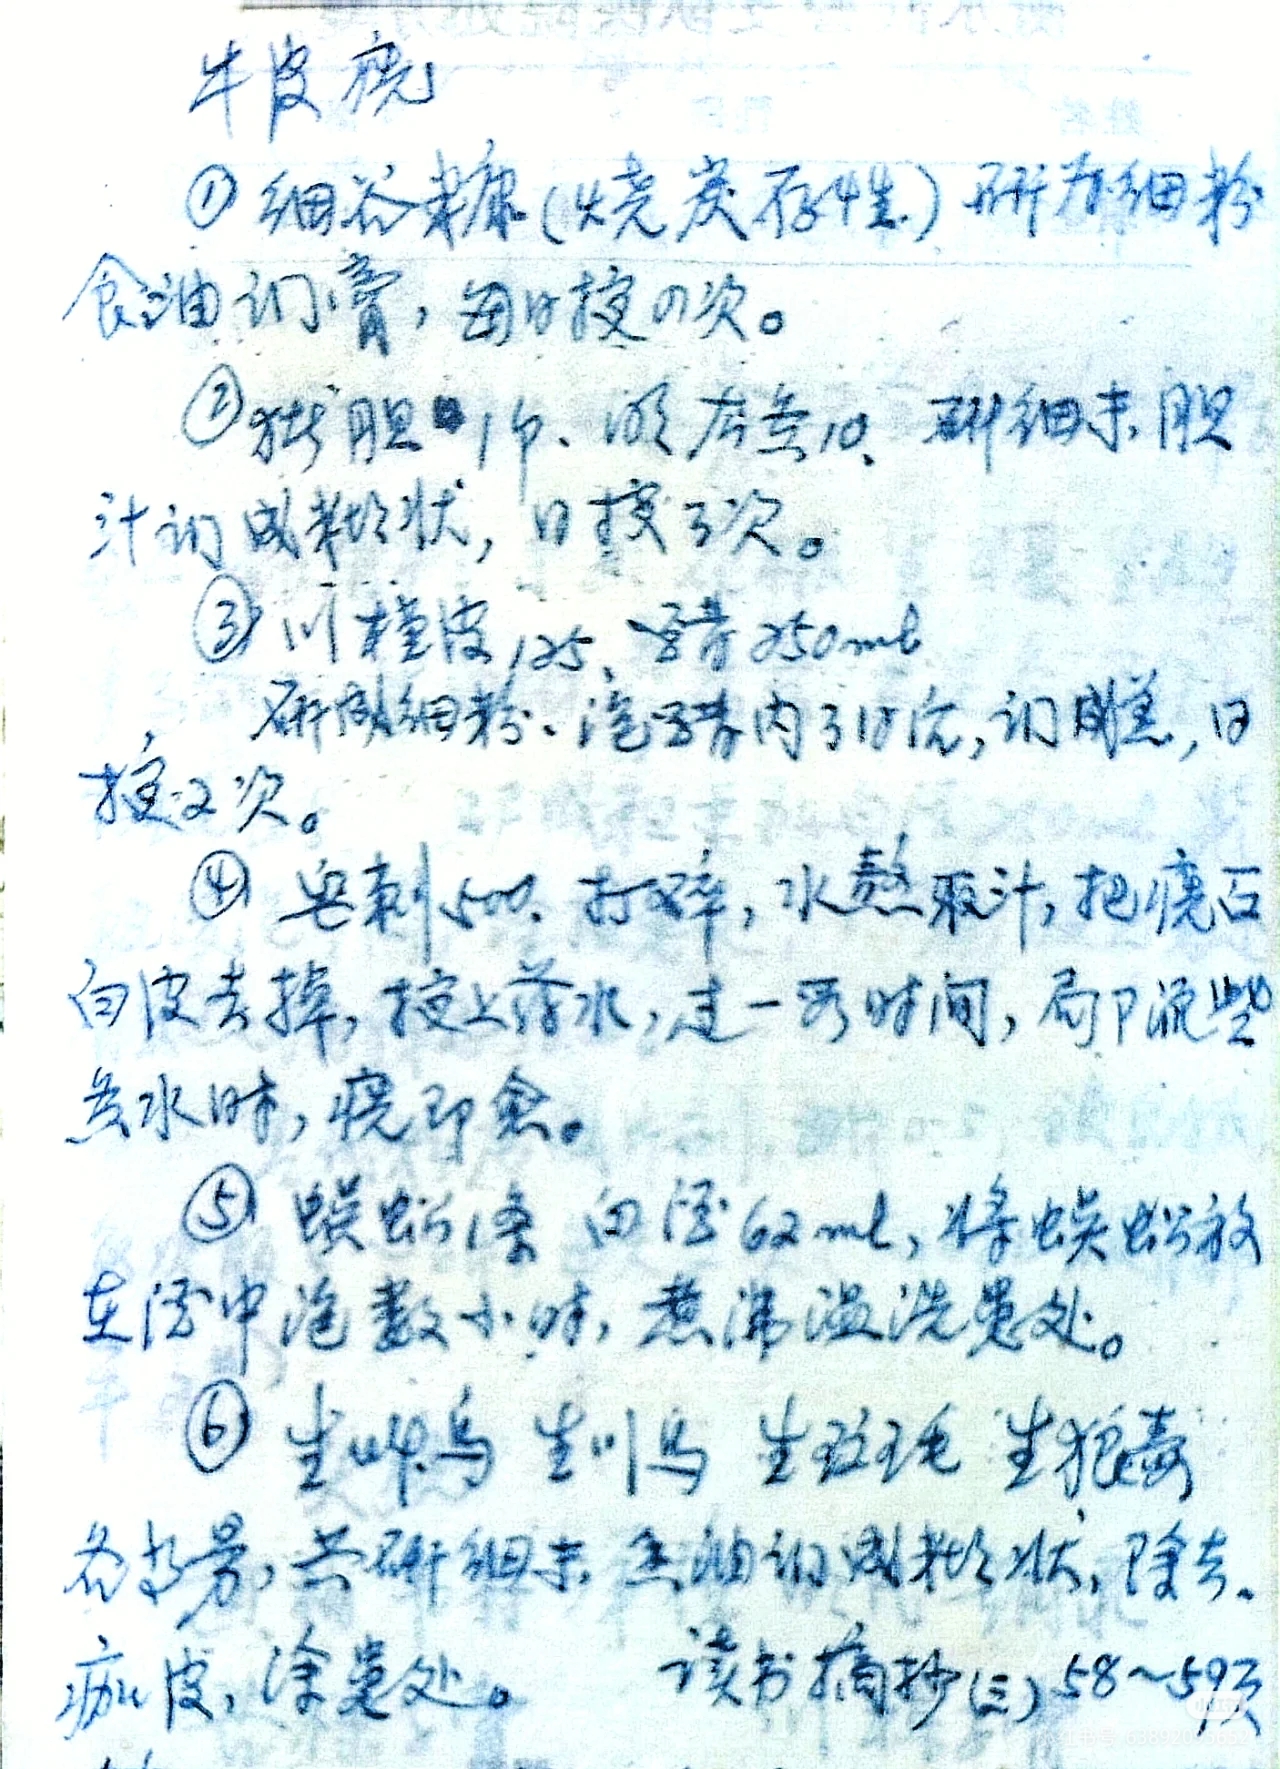 牛皮癣
① 细谷糠(烧炭存性)研为细粉
食油调膏,每日擦四次。
② 猪胆1个、明矾10、研细末,胆
汁调成糊状,日擦3次。
③ 川槿皮125、醋250ml
研成细粉、泡醋内310天,调成羔,日
擦2次。
④ 皂刺500、打碎,水熬取汁,把癣
白皮去掉,擦上药水,过一段时间,局部流些
黄水时,癣即愈。
⑤ 蜈蚣1条 白酒62ml,将蜈蚣放
在酒中泡数小时,煮沸温洗患处。
⑥ 生草乌 生川乌 生斑毛 生狼毒
各等量,共研细末,香油调成糊状,除去
痂皮,涂患处。 读书摘抄(三)58~59页
小红书